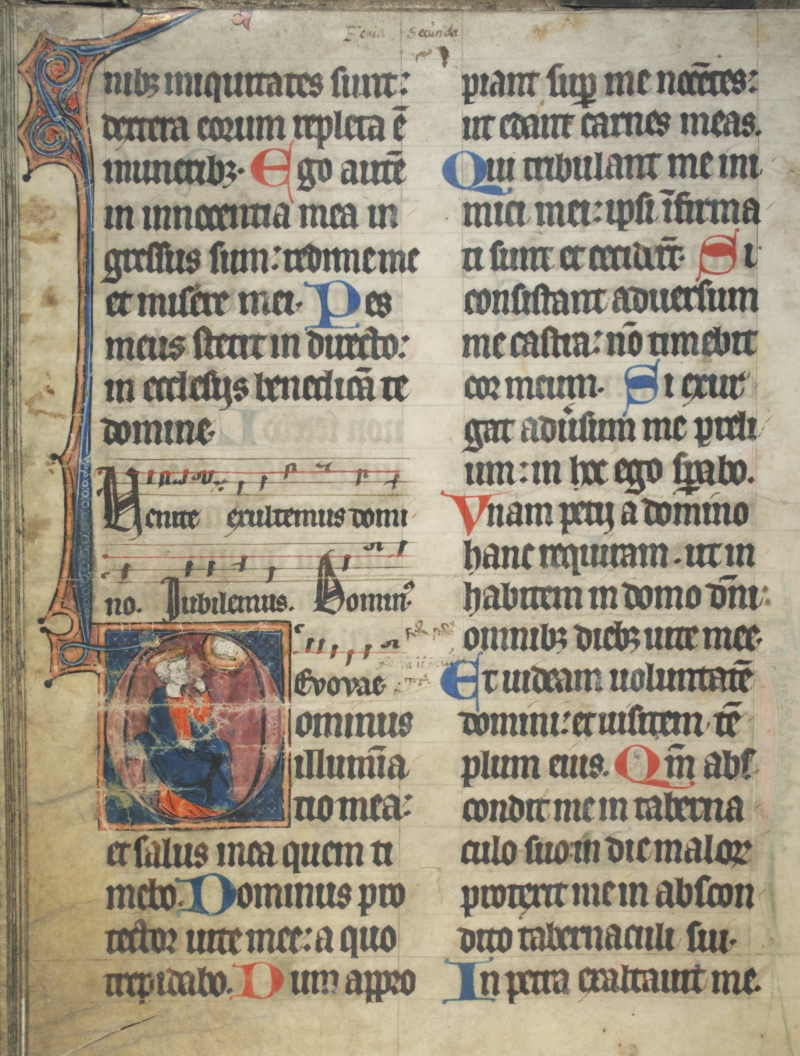 Feria Secunda
nibꝫ iniquitates sunt:
dextera eorum repleta ē
muneribꝫ. Ego autē
in innocentia mea in
gressus sum: redime me
et misere mei. Pes
meus stetit in directo:
in ecclesijs benedicā te
domine.
Venite exultemus domi
no. Iubilemus. Domin⁹
Evovae
ominus
illumīa
tio mea:
et salus mea quem ti
mebo. Dominus pro
tector uite mee: a quo
trepidabo. Dum appro
piant suꝑ me nocētes:
ut edant carnes meas.
Qui tribulant me ini
mici mei: ipsi īfirma
ti sunt et ceciderūt. Si
consistant aduersum
me castra: nō timebit
cor meum. Si exur
gat adūsum me preli
um: in hoc ego sꝑabo.
Vnam petij a domino
hanc requiram. ut in
habitem in domo dn̄i:
omnibꝫ diebꝫ uite mee.
Et uideam uoluntatē
domini: et uisitem tē
plum eius. Qm̄ abs
condit me in taberna
culo suo in die maloꝝ
protexit me in abscon
dito tabernaculi sui.
In petra exaltauit me.